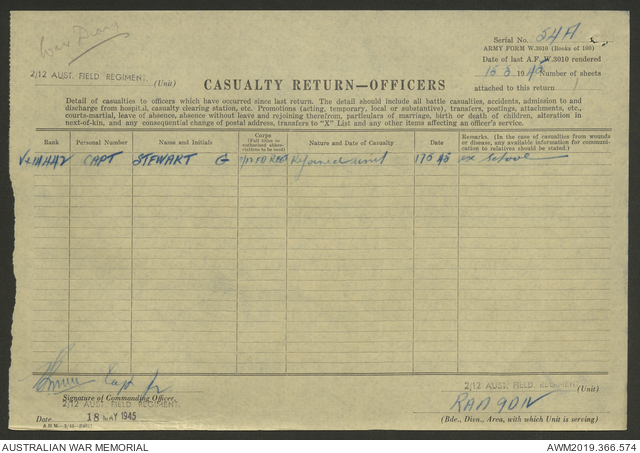 War Diary
Serial No. 54A
ARMY FORM W.3010 (Books of 100)
Date of last A.F. W.3010 rendered
15 5 1945 Number of sheets
attached to this return 1
2/12 AUST. FIELD REGIMENT. (Unit)
CASUALTY RETURN—OFFICERS
Detail of casualties to officers which have occurred since last return. The detail should include all battle casualties, accidents, admission to and
discharge from hospital, casualty clearing station, etc. Promotions (acting, temporary, local or substantive), transfers, postings, attachments, etc.,
courts-martial, leave of absence, absence without leave and rejoining therefrom, particulars of marriage, birth or death of children, alteration in
next-of-kin, and any consequential change of postal address, transfers to "X" List and any other items affecting an officer's service.
Rank Personal Number Name and Initials Corps (Full titles or authorised abbreviations to be used) Nature and Date of Casualty Date Remarks. (In the case of casualties from wounds or disease, any available information for communication to relatives should be stated.)
CAPT STEWART G 2/12 FD REG Rejoined unit ex School
Capt
Signature of Commanding Officer.
2/12 AUST. FIELD REGIMENT.
Date 18 MAY 1945
2/12 AUST. FIELD REGIMENT. (Unit)
(Bde., Divn., Area, with which Unit is serving)
AUSTRALIAN WAR MEMORIAL
AWM2019.366.574